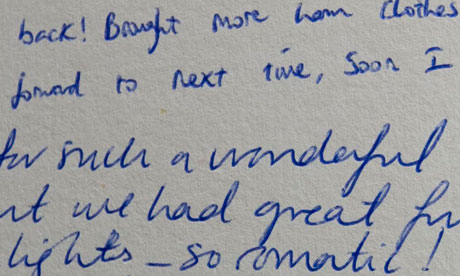 back! Brought more ham clothes
forward to next time, soon I
for such a wonderful
we had great
lights - so romatic!